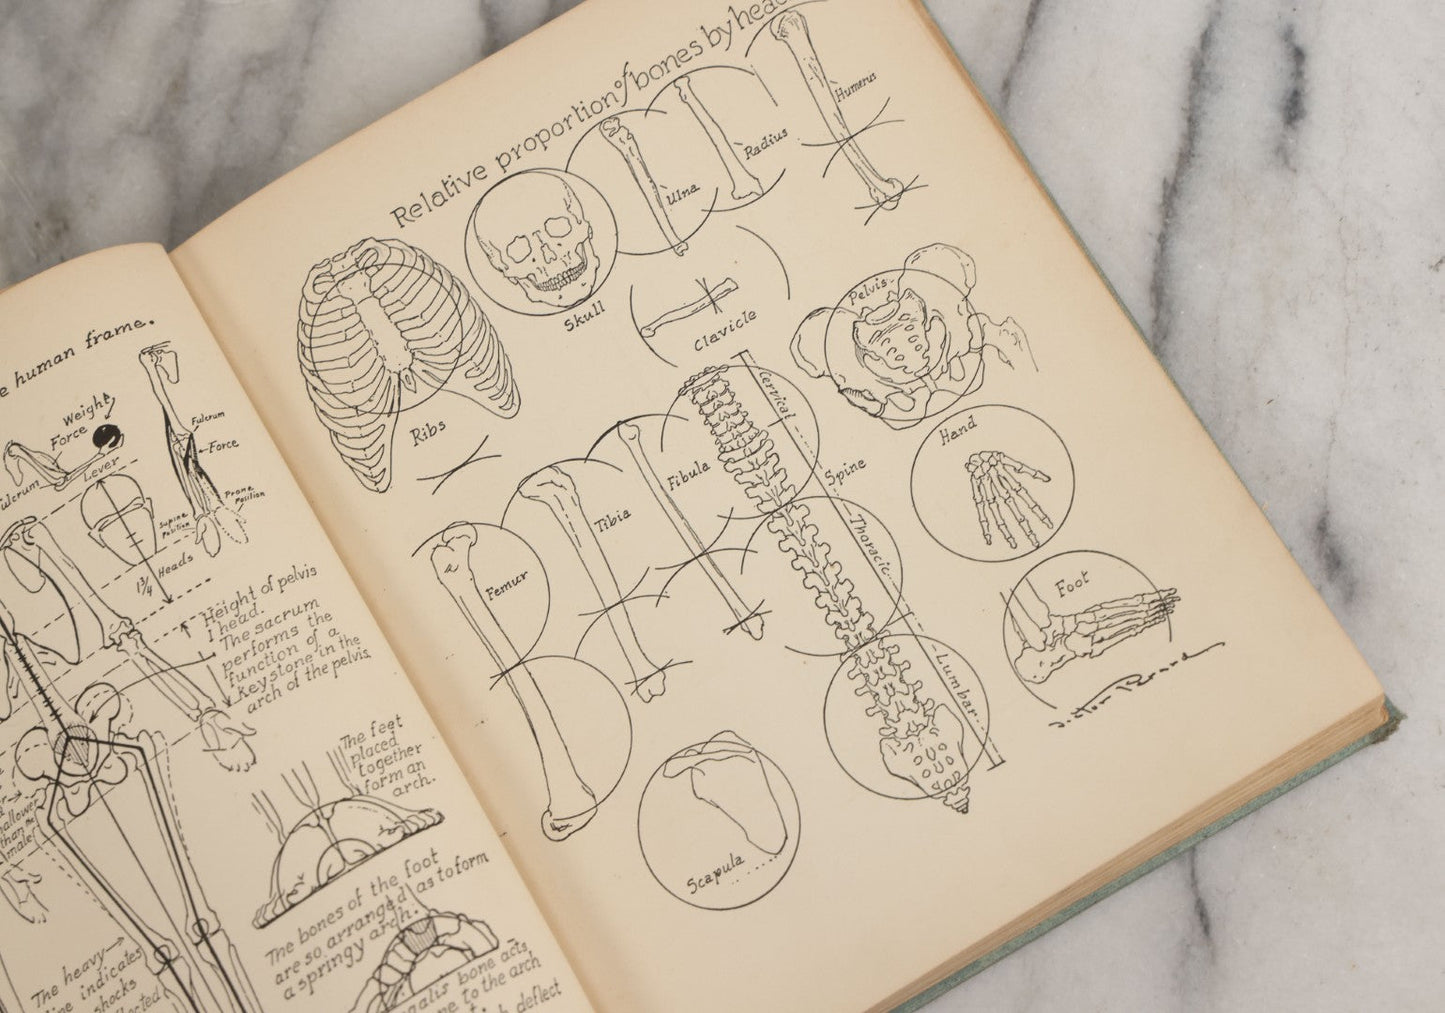 human frame.
Weight
Force
Fulcrum
Lever
Fulcrum
Force
Prone
Position
Supine
Position
1¾ Heads
Height of pelvis
1 head.
The sacrum
performs the
function of a
keystone in the
arch of the pelvis.
than the
male
The feet
placed
together
form an
arch.
The bones of the foot
are so arranged as to form
a springy arch.
The heavy
line indicates
shocks
bone acts
to the arch
deflect
Relative proportion of bones by head
Humerus
Radius
Ulna
Skull
Clavicle
Pelvis
Ribs
Cervical
Hand
Spine
Fibula
Tibia
Thoracic
Femur
Foot
Lumbar
a
Scapula